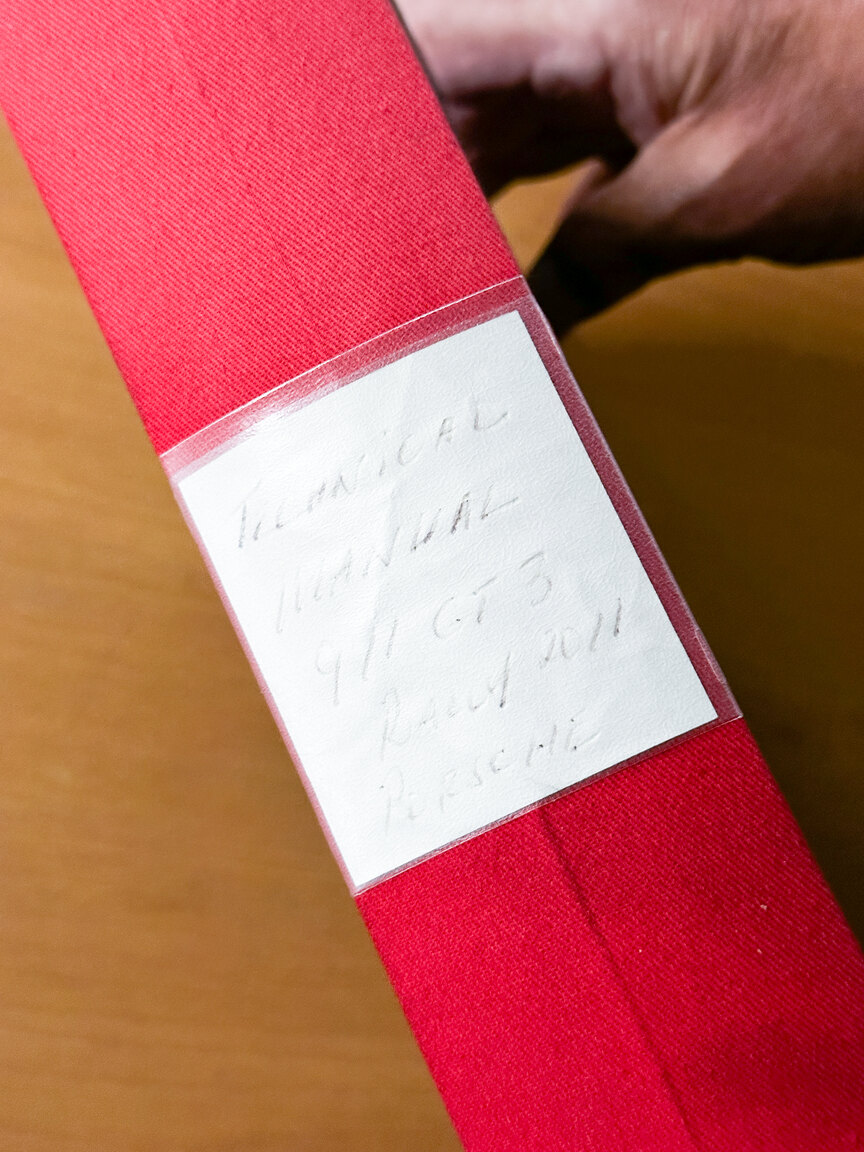 TECHNICAL
MANUAL
911 GT 3
RALLY 2011
PORSCHE